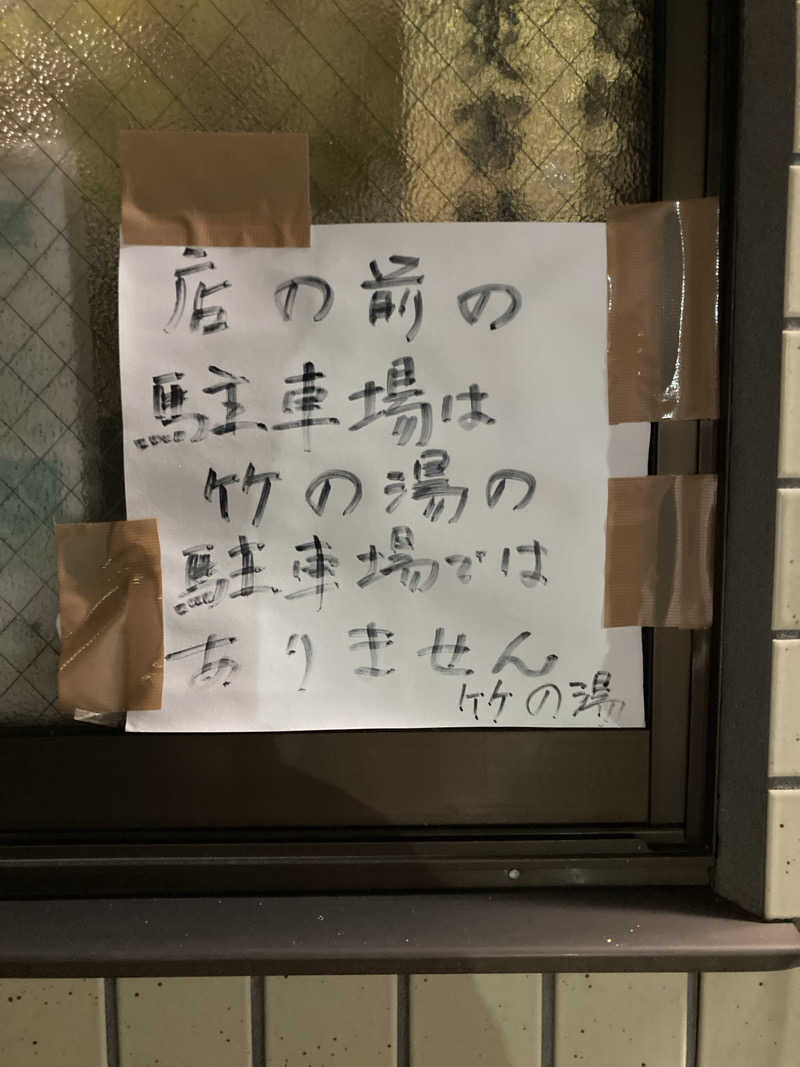 店の前の
駐車場は
竹の湯の
駐車場では
ありません
竹の湯